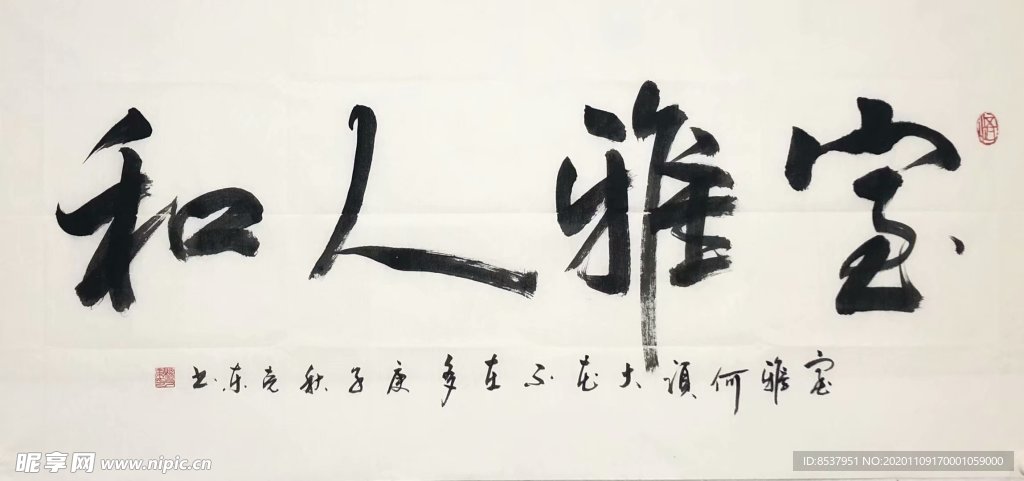 室雅人和
室雅何須大花不在多庚子秋克东书
昵享网 www.nipic.cn
ID:8537951 NO:20201109170001059000